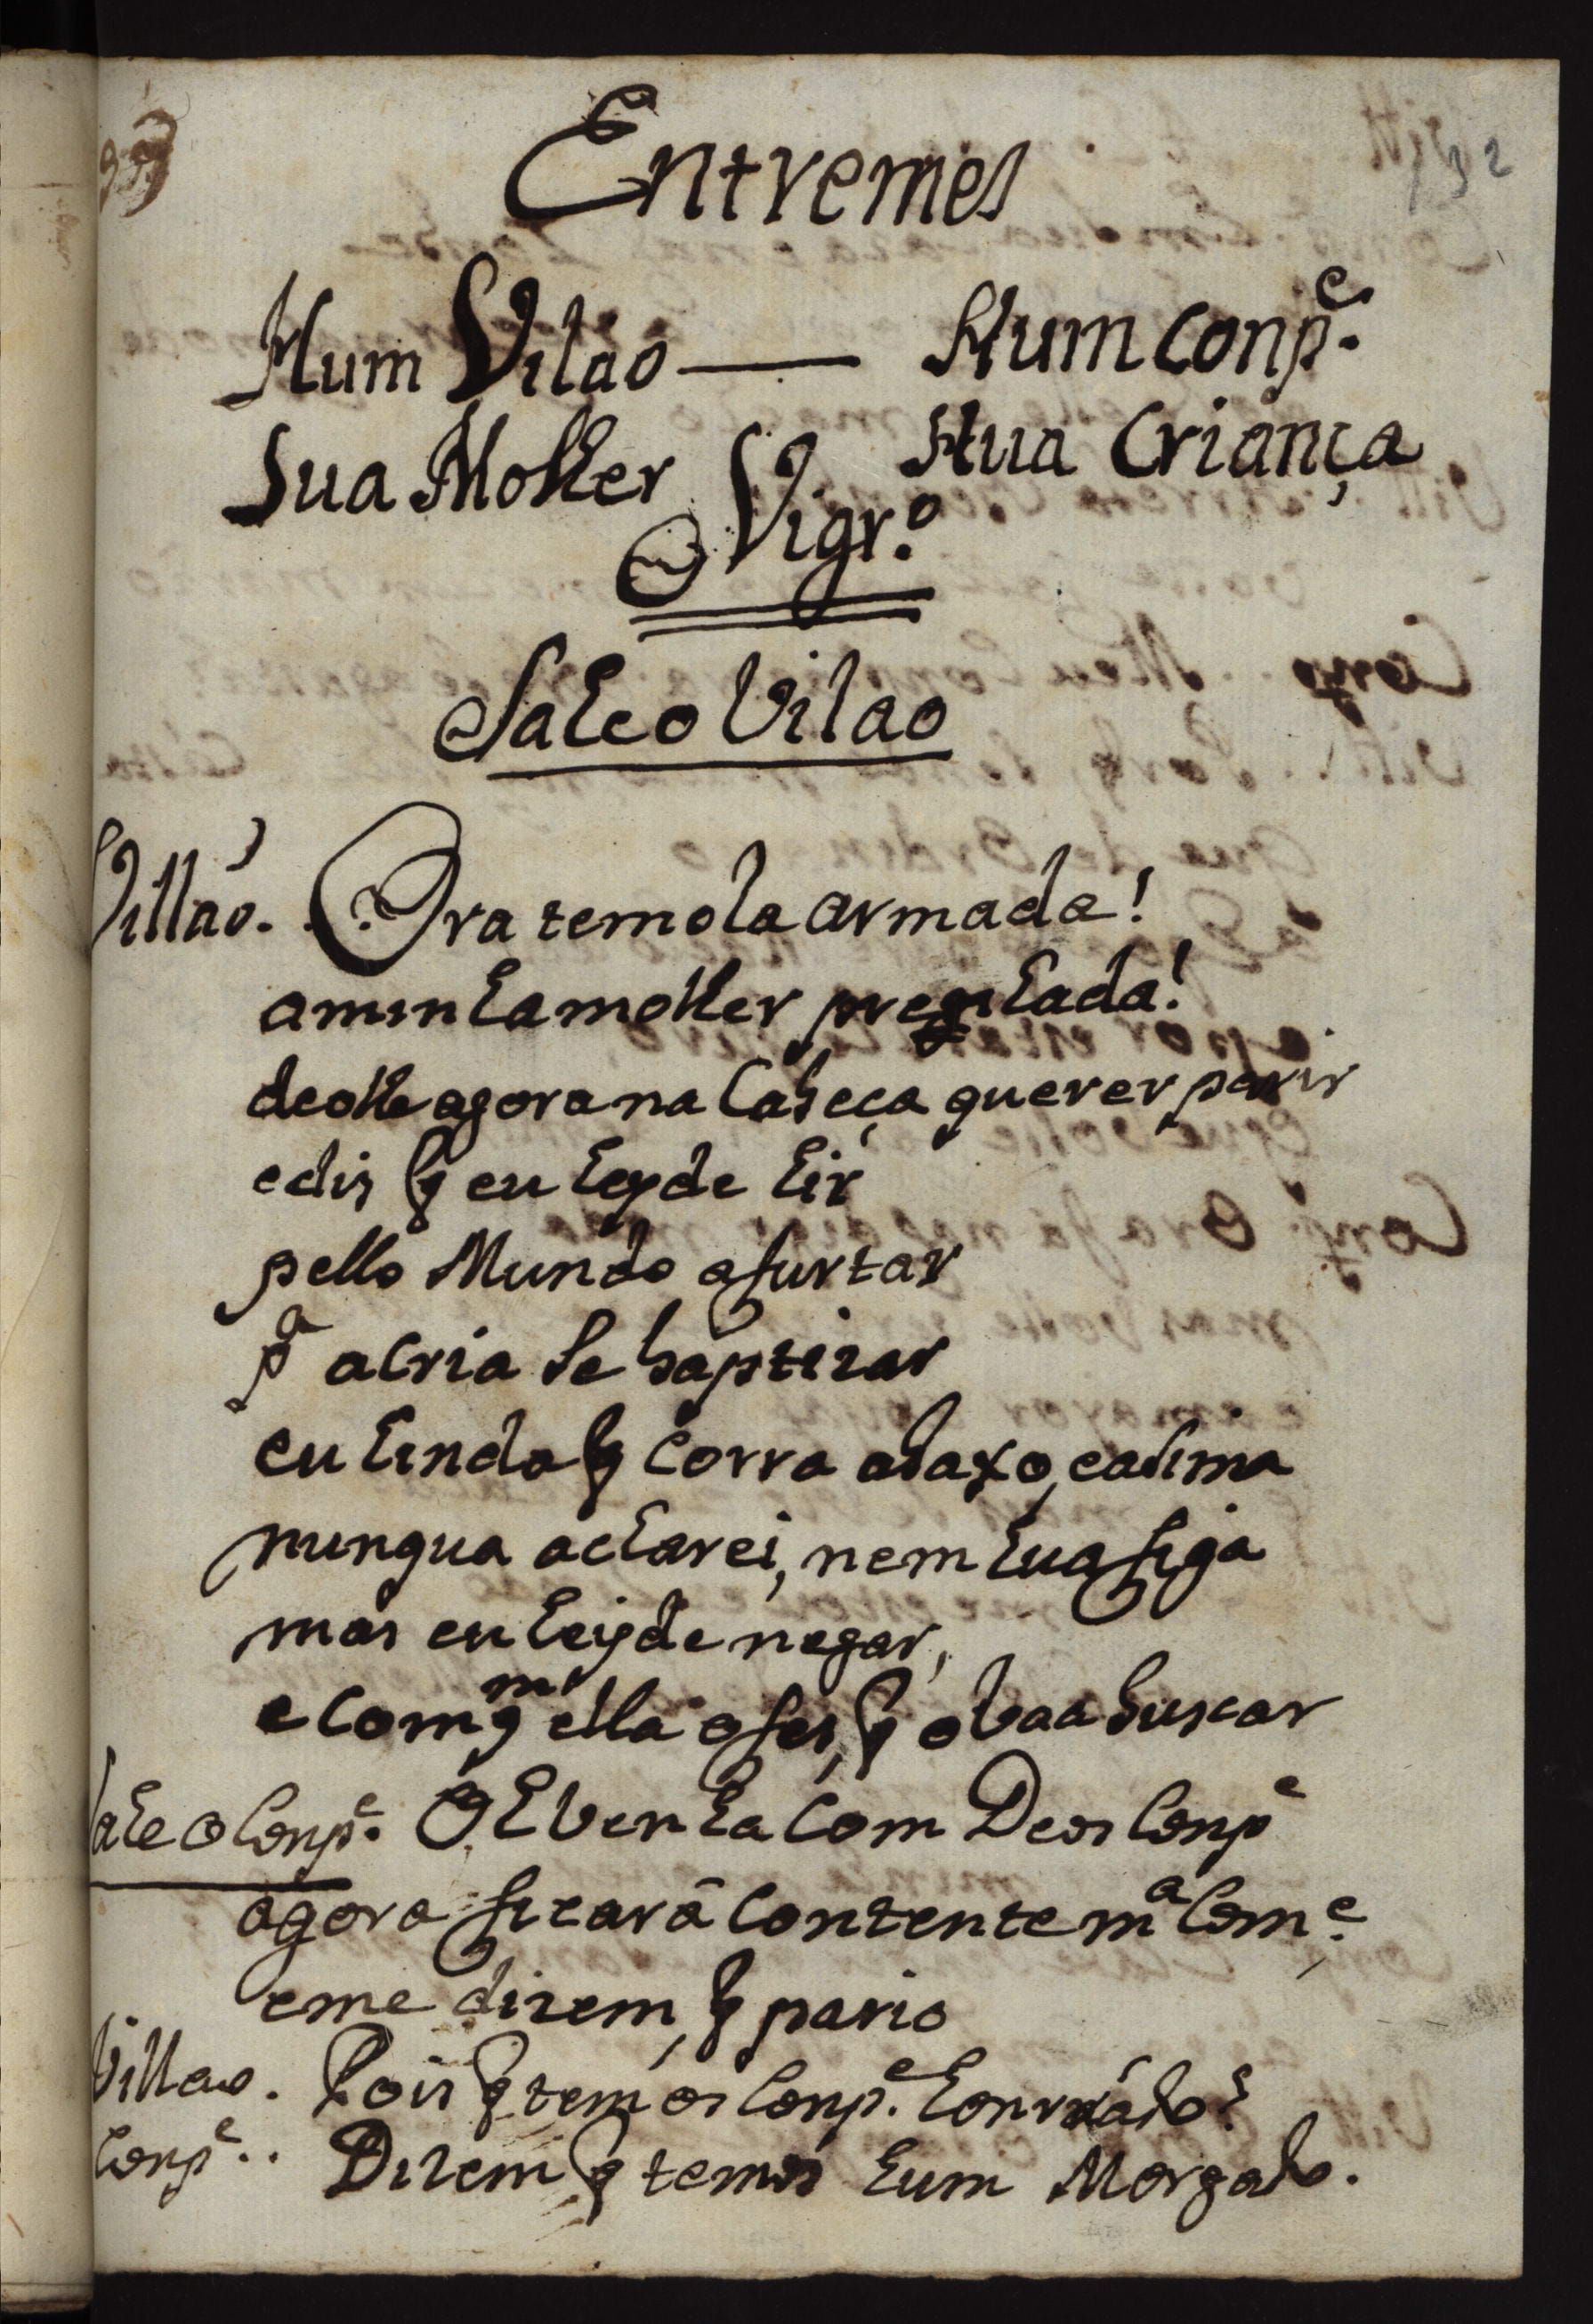 Entremes
Hum Vilao — Hum Conp.e
Sua Molher Hua Criança
O Vigr.o
Sahe o Vilao
Villaõ. Ora temola armada!
a minha molher pregnhada!
deolhe agora na Cabeça querer parir
e dis q eu hey de hir
pello Mundo a furtar
p.a a Cria se baptizar
eu hinda q Corra abaxo, e asima
nunqua acharei, nem hua figa
mas eu heyde negar,
e Com q.m ella o fes, q o vaa buscar
Sahe o Conp.e O Lá venha Com Deos Conp.e
agora ficarâ Contente m.a Com.e
e me dizem, q pario
Villao. Pois q temos Conp.e honrrado?
Conp.e.. Dizem q temos hum Morgado.